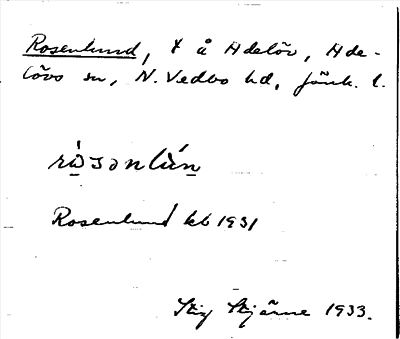 Rosenlund, t å Adelöv, Ade-
lövs sn, N. Vedbo hd, Jönk. l.
Rosenlund kb 1931
Stig Stjärne 1933.